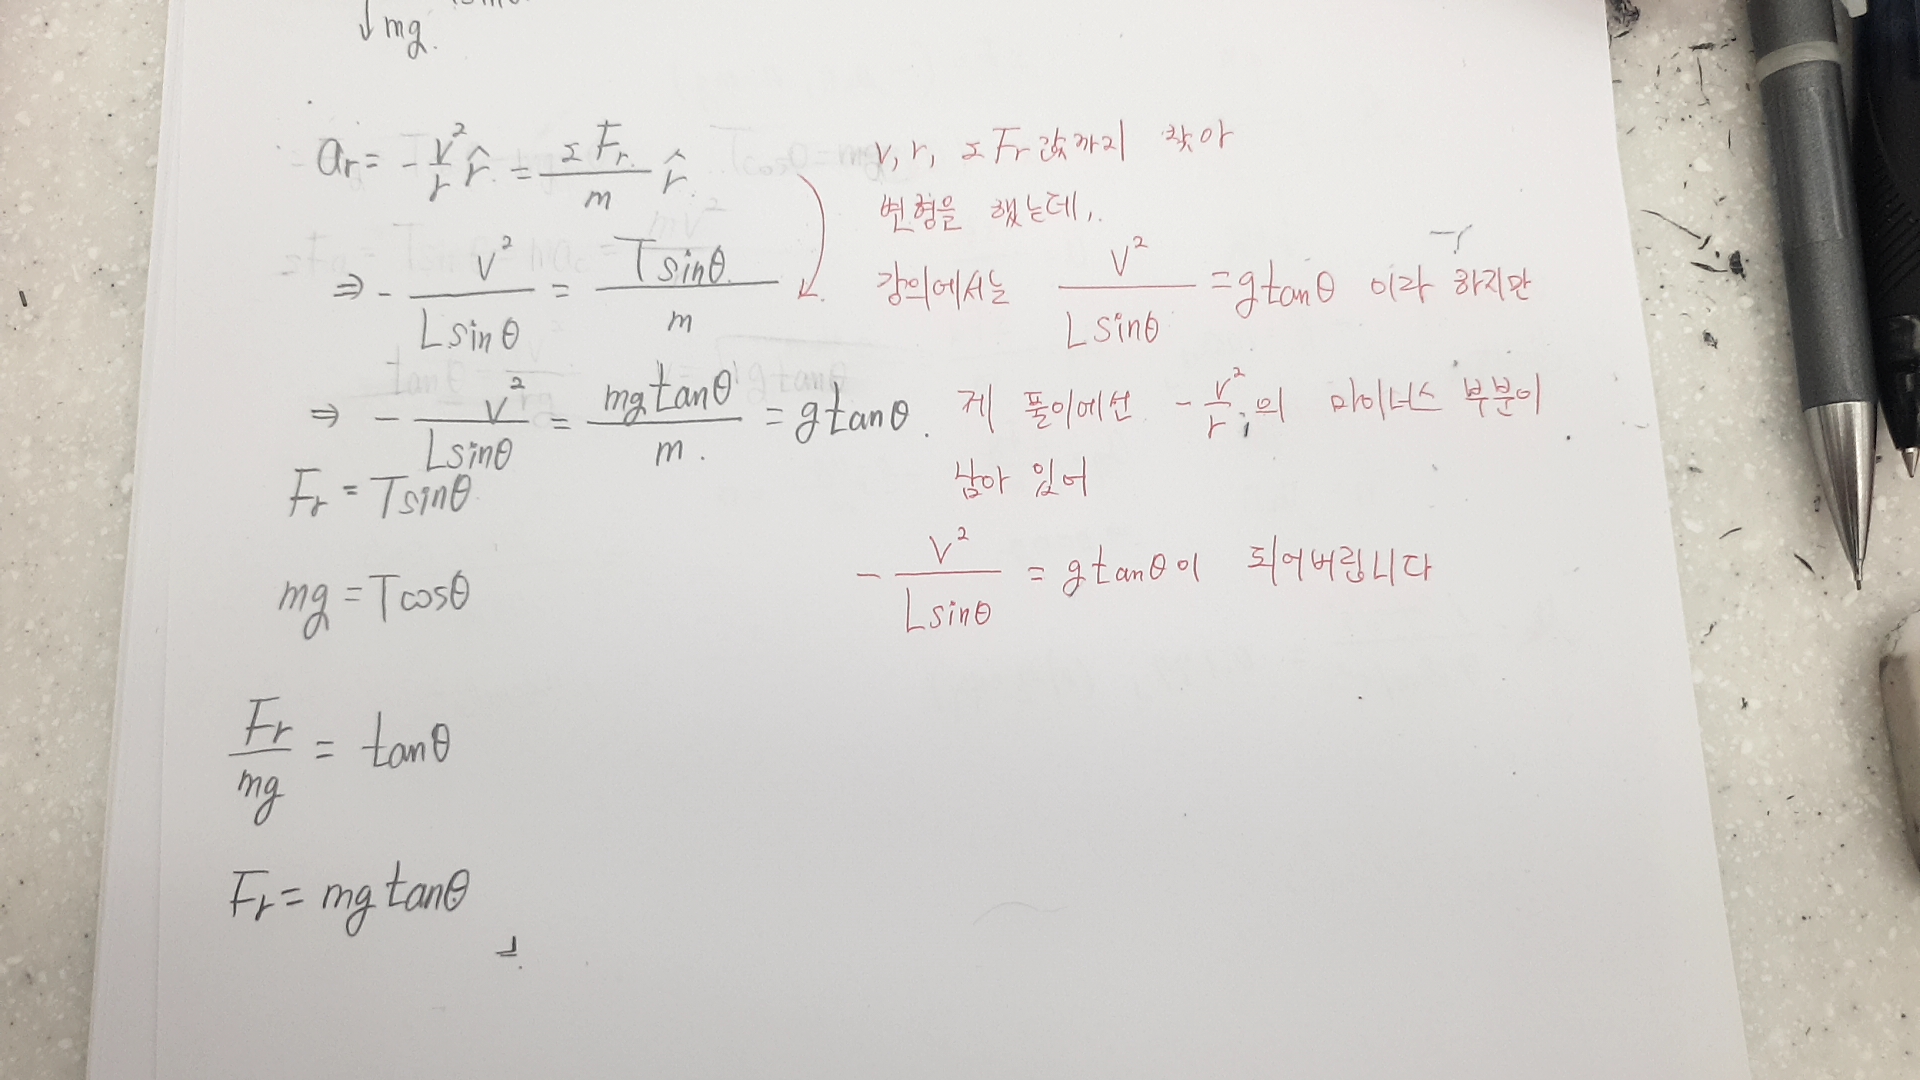 ↓mg.
a_r = - v²/r r̂ = ΣF_r/m r̂
⇒ - v²/(L sinθ) = T sinθ/m
⇒ - v²/(L sinθ) = mg tanθ/m = g tanθ.
F_r = T sinθ
mg = T cosθ
F_r/mg = tanθ
F_r = mg tanθ
v, r, ΣF_r 값까지 찾아
변형을 했는데,
강의에서는 v²/(L sinθ) = g tanθ 이라 하지만
제 풀이에선 - v²/r 의 마이너스 부분이
남아 있어
- v²/(L sinθ) = g tanθ이 되어버립니다